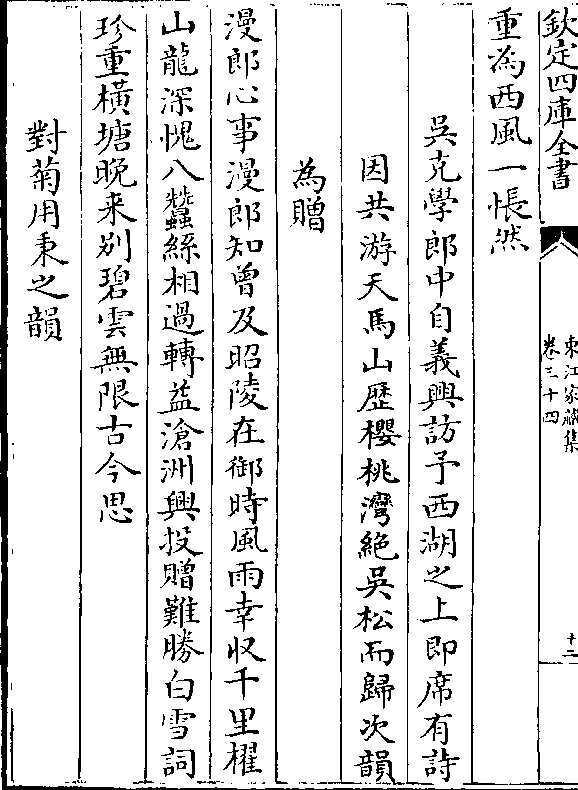 欽定四庫全書
東江家藏集
卷三十四
十二
重為西風一悵然
吳克學郎中自義興訪予西湖之上即席有詩
因共游天馬山歷櫻桃灣絕吳松而歸次韻
為贈
漫郎心事漫郎知曾及昭陵在御時風雨幸収千里櫂
山龍深愧八蠶絲相過轉益滄洲興投贈難勝白雪詞
珍重橫塘晚来別碧雲無限古今思
對菊用秉之韻